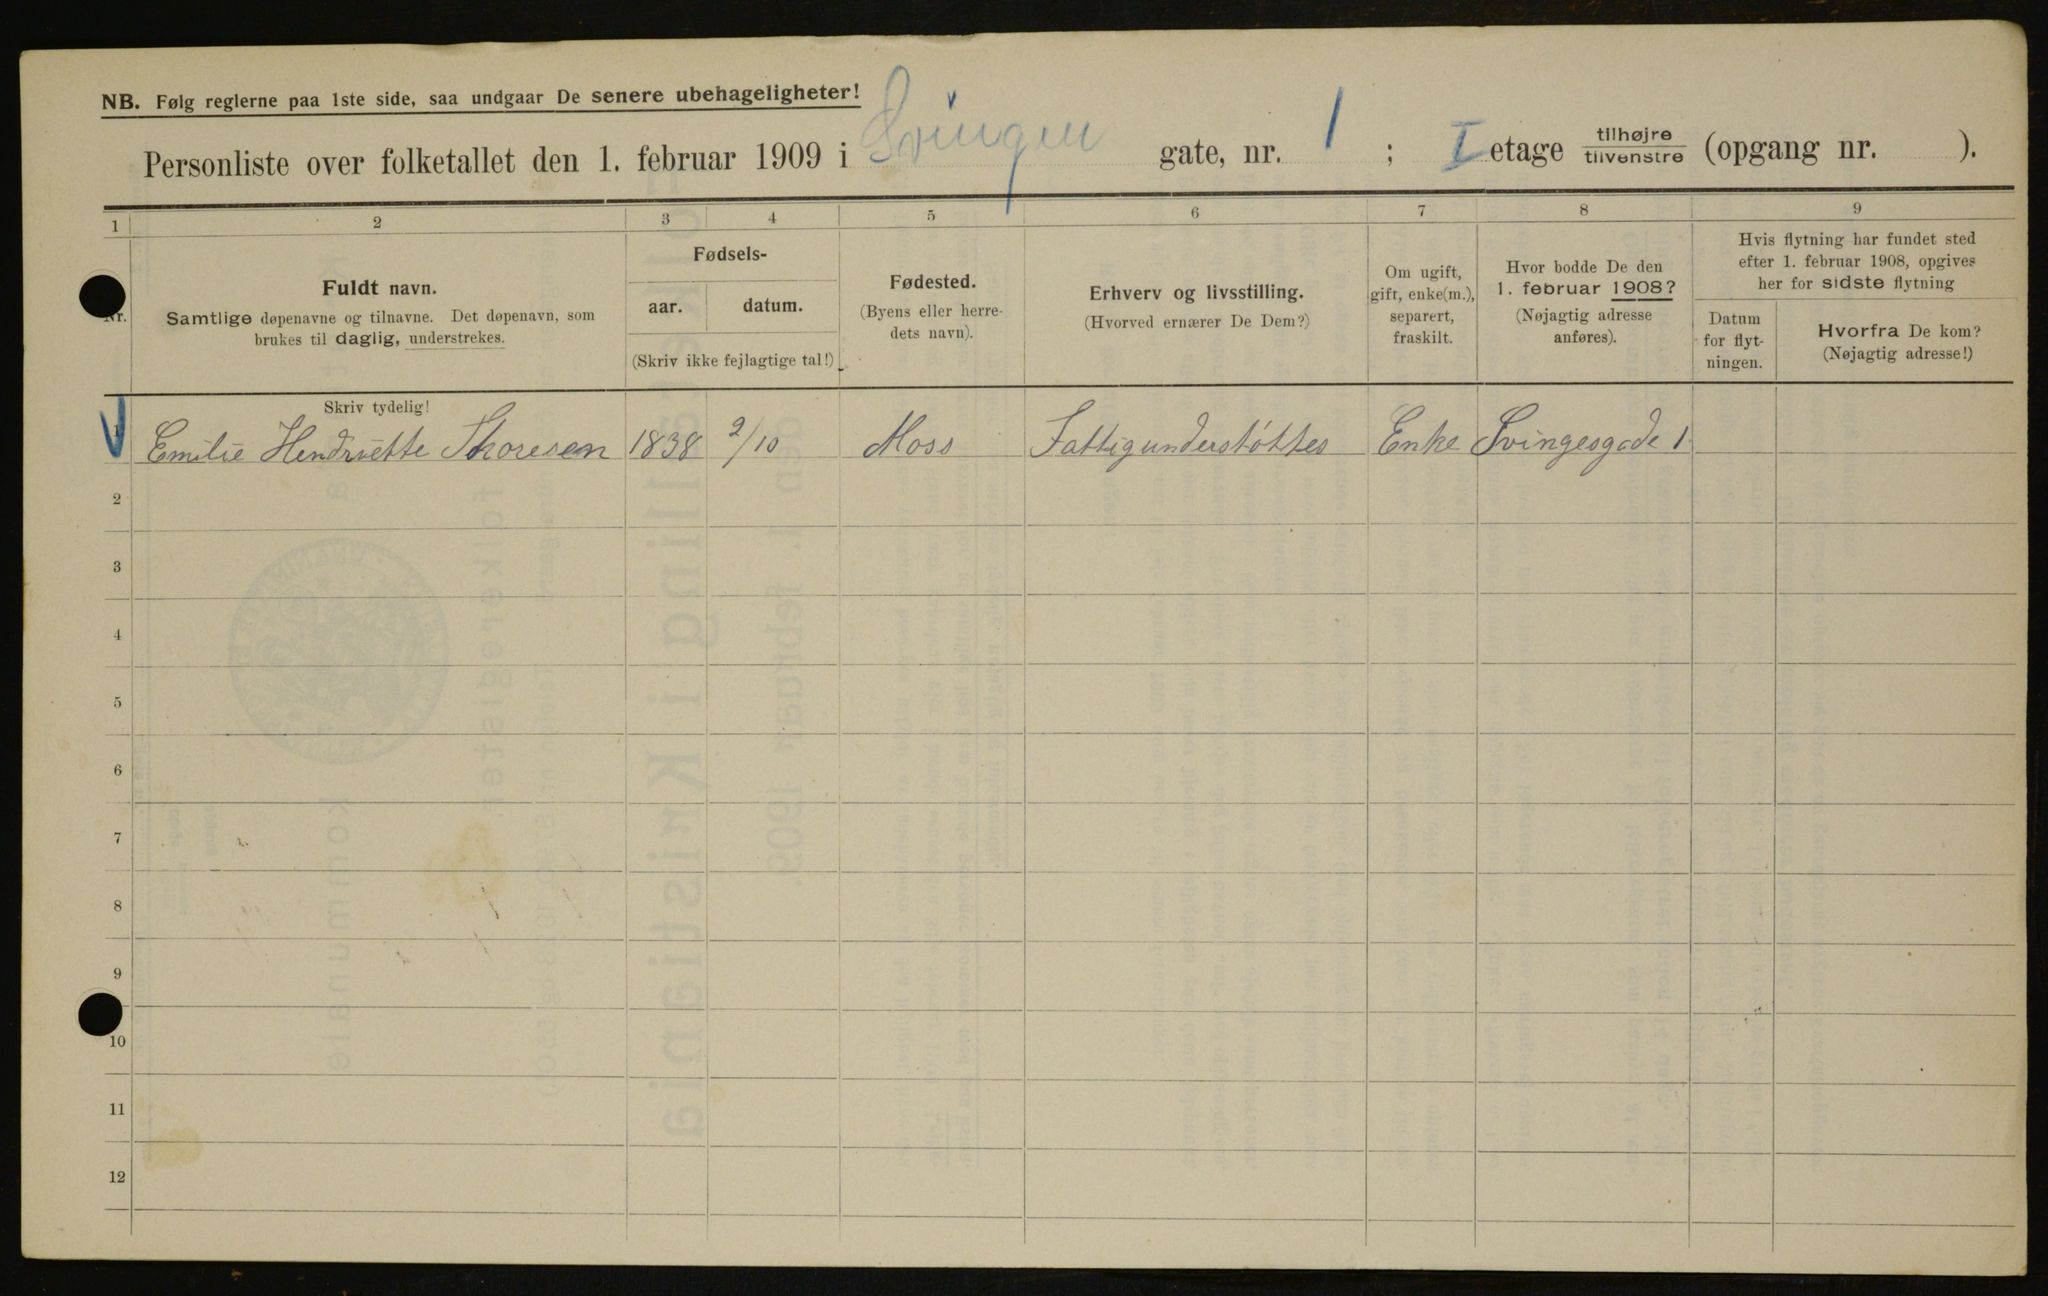 NB. Følg reglerne paa 1ste side, saa undgaar De senere ubehageligheter!
Personliste over folketallet den 1. februar 1909 i Svingen gate, nr. 1 ; I etage tilhøjre/tilvenstre (opgang nr. ).
1 2 3 4 5 6 7 8 9
Nr.
Fuldt navn.
Samtlige døpenavne og tilnavne. Det døpenavn, som
brukes til daglig, understrekes.
Skriv tydelig!
Fødsels-
aar. datum.
(Skriv ikke fejlagtige tal!)
Fødested.
(Byens eller herre-
dets navn).
Erhverv og livsstilling.
(Hvorved ernærer De Dem?)
Om ugift,
gift, enke(m.),
separert,
fraskilt.
Hvor bodde De den
1. februar 1908?
(Nøjagtig adresse
anføres).
Hvis flytning har fundet sted
efter 1. februar 1908, opgives
her for sidste flytning
Datum
for flyt-
ningen.
Hvorfra De kom?
(Nøjagtig adresse!)
1 Emilie Hendriette Thoresen 1838 2/10 Moss Fattigunderstøttes Enke Svingesgade 1
2
3
4
5
6
7
8
9
10
11
12